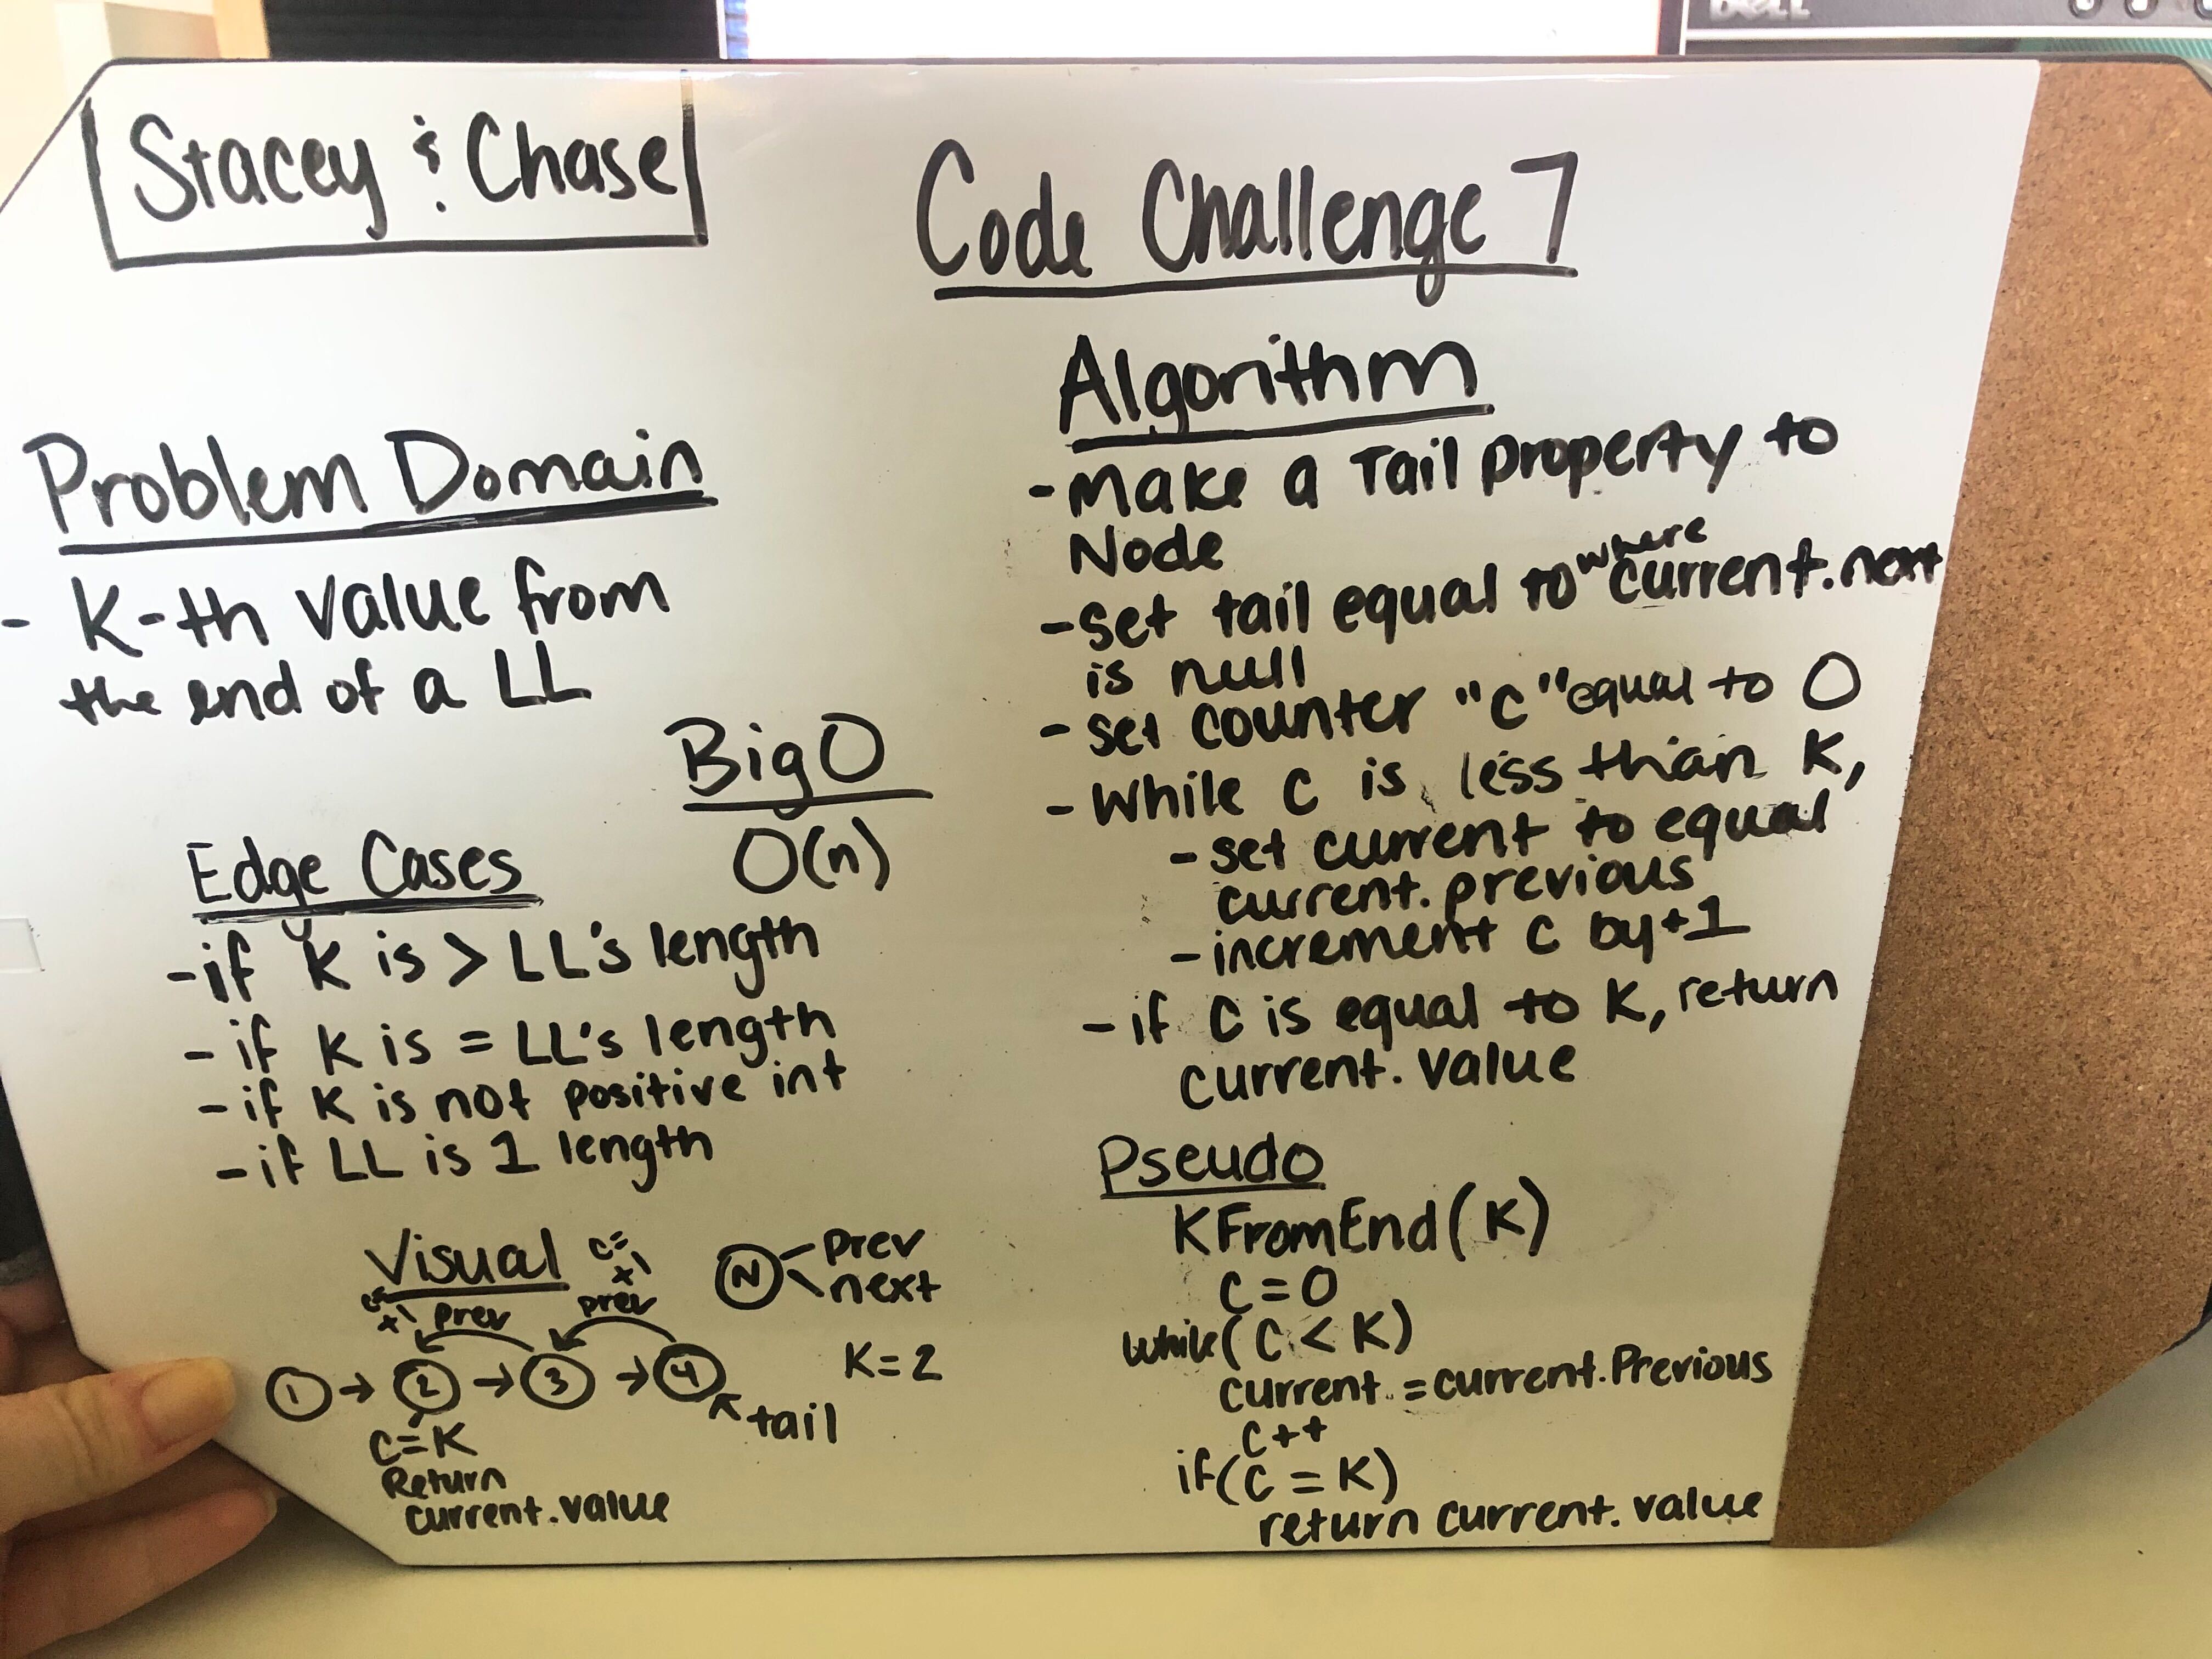 DELL
Stacey & Chase
Code Challenge 7
Problem Domain
- K-th value from
the end of a LL
Big O
O(n)
Edge Cases
- if K is > LL's length
- if K is = LL's length
- if K is not positive int
- if LL is 1 length
Visual
c=
+1
N
prev
next
c=
+1
prev
prev
1 → 2 → 3 → 4
K=2
tail
C=K
Return
current.value
Algorithm
- Make a Tail property to
Node
- set tail equal to where current.next
is null
- set counter "c" equal to 0
- While c is less than K,
- set current to equal
current.previous
- increment c by +1
- if C is equal to K, return
current.value
Pseudo
KFromEnd(K)
C=0
while(C < K)
current = current.Previous
C++
if(C = K)
return current.value